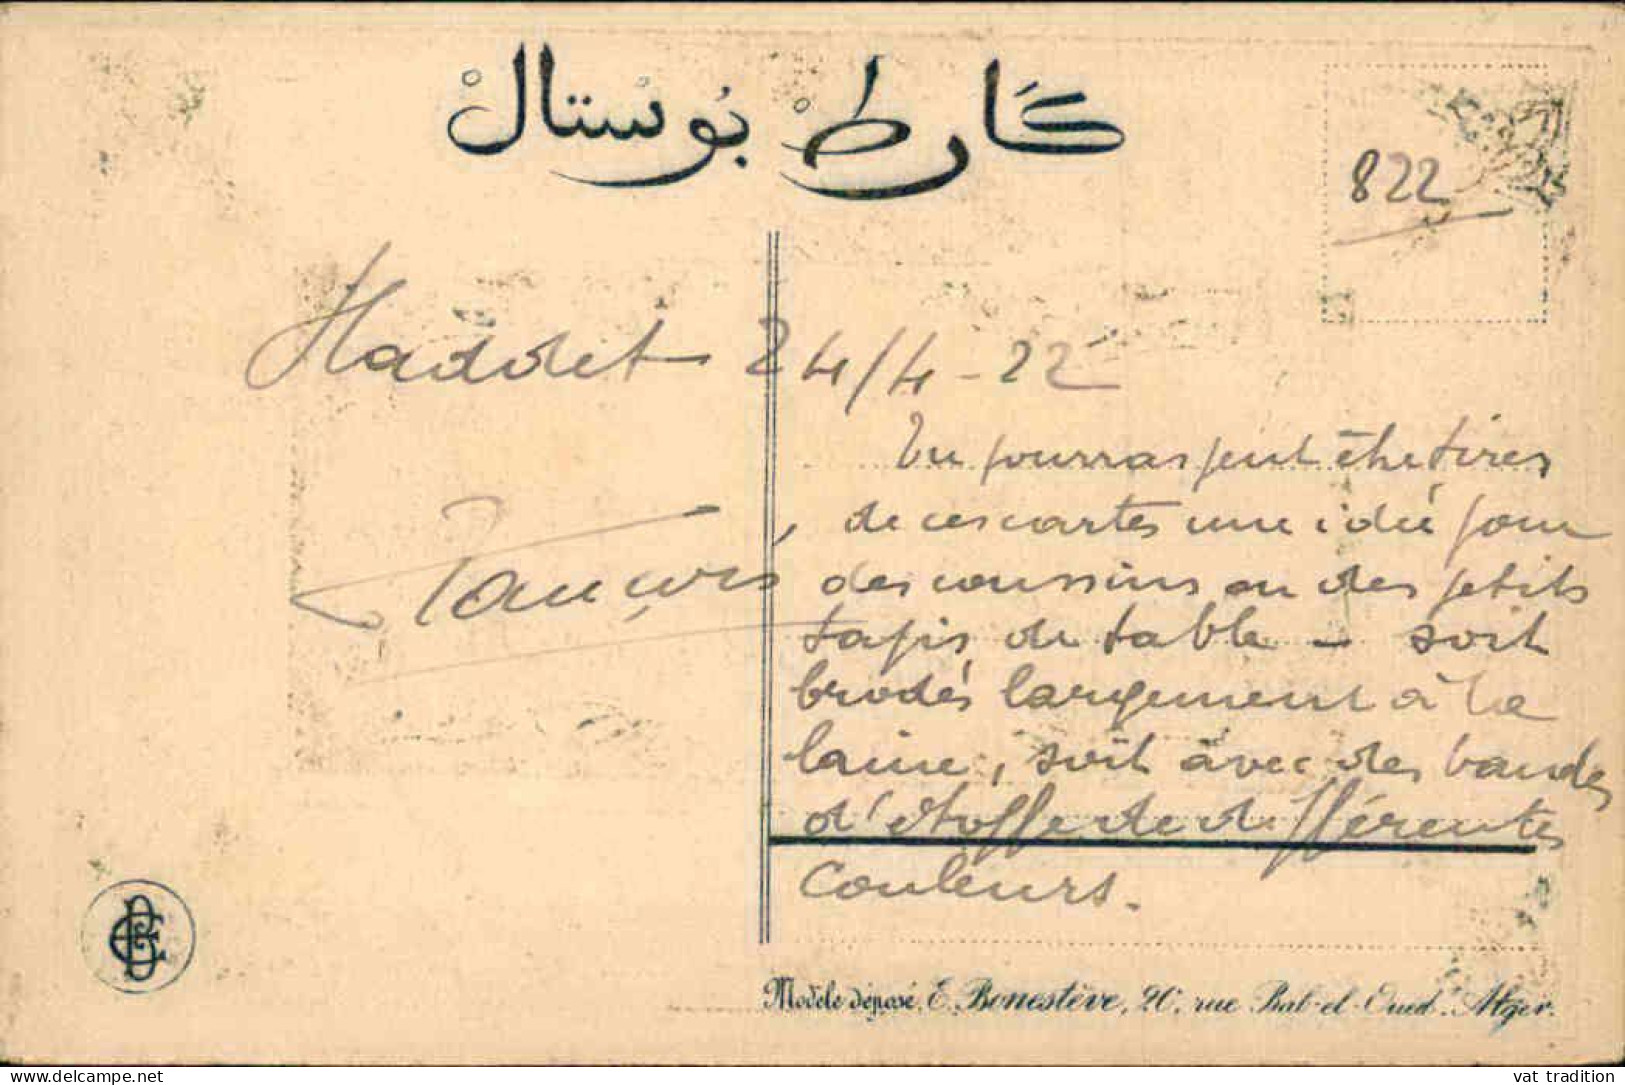 كَارطْ بُوسْتَالْ
822
Haddet 24/4-22
Tu pourras peut être tirer
de ces cartes une idée pour
des coussins ou des petits
tapis de table – soit
brodés largement à la
laine, soit avec des bandes
d'étoffe de différentes
couleurs.
Modèle déposé, E. Bonestève, 20, rue Bab-el-Oued. Alger.
vat tradition
www.delcampe.net